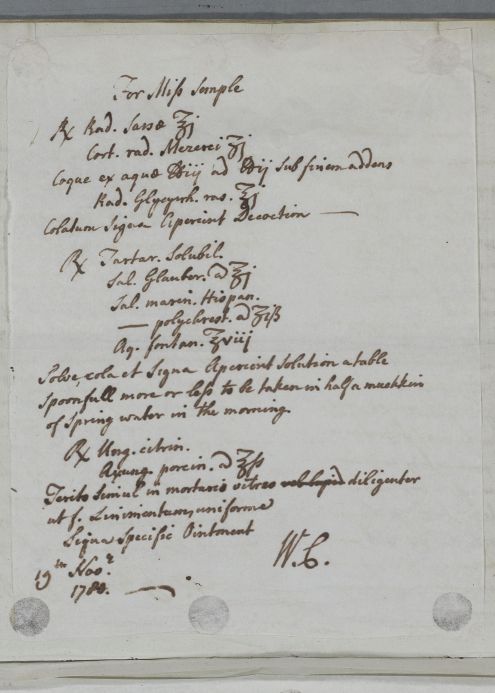 For Miſs Semple
℞ Rad. Sassæ ℥j
Cort. rad. Mezerei ʒj
Coque ex aquæ ℔iij ad ℔ij sub finem addens
Rad. Glycyrrh. ras. ℥j
Colatum Signa Aperient Decoction —
℞ Tartar. Solubil.
Sal. Glauber. a ℥j
Sal. marin. Hispan.
— polychrest. a ʒiß
Aq. fontan. ℥viij
Solve, cola et Signa Aperient Solution a table
Spoonfull more or leſs to be taken in half a mutchkin
of Spring water in the morning.
℞ Ung. citrin.
Axung. porcin. a ℥ſs
Terito Simul in mortario vitreo diligenter
ut f. Linimentum, uniforme
Signa Specific Ointment
W. C.
19th Novr.
1780.